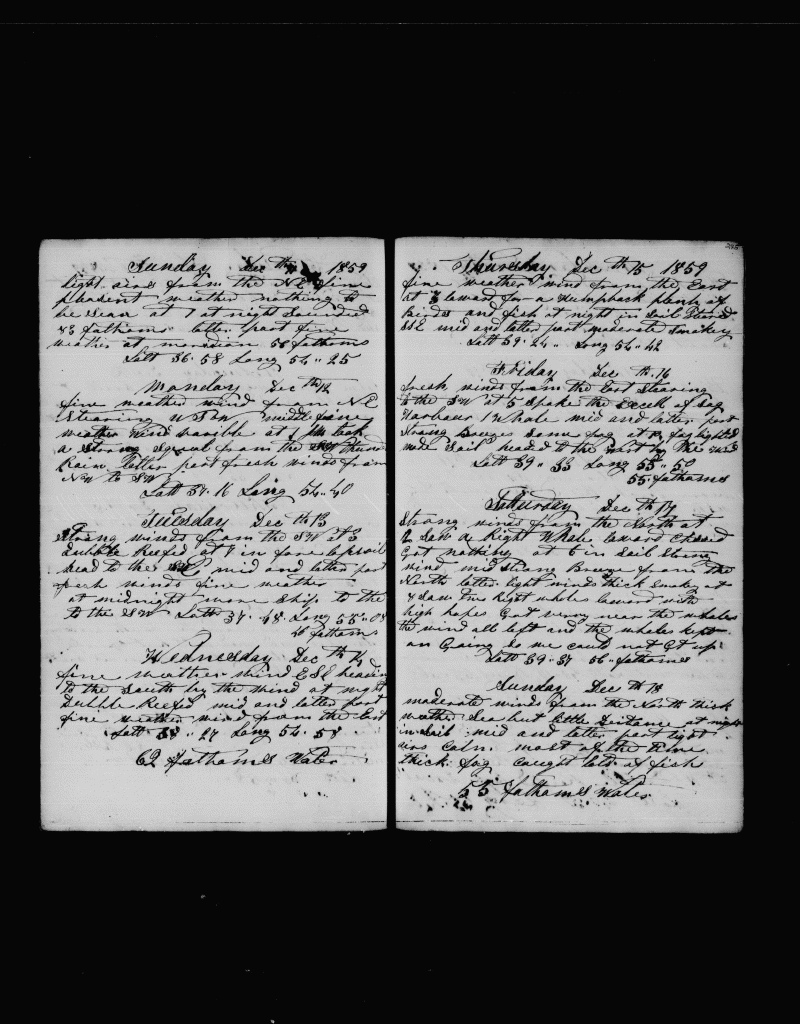 Sunday Dec th 11 1859
light airs from the NE fine
pleasent weather nothing to
be seen at 7 at night Sounded
43 fathoms latter part fine
weather at meridian 58 fathoms
Latt 36 " 58 Long 54 " 25
Monday Dec th 12
fine weather wind from NE
Stearing WSW middle fine
weather wind varible at 1 took
a Strong Squal from the SW thunder
Rain latter part fresh winds from
NW to SW
Latt 37 " 16 Long 54 " 40
Tuesday Dec th 13
Strong winds from the SW at 3
dubble Reefed at 7 in fore topsail
head to the mid and latter part
fresh winds fine weather
at midnight wore Ship to the
to the Latt 37 " 48 Long 55 " 08
46 fathoms
Wednesday Dec th 14
fine weather wind ESE heading
to the South by the wind at night
dubble Reefed mid and latter part
fine weather wind from the East
Latt 38 " 27 Long 54 " 58
62 fathoms Water
Thursday Dec th 15 1859
fine weather wind from the East
at 3 lowerd for a Humpback plenty of
Birds and fish at night in Sail
SSE mid and latter part moderate Smokey
Latt 39 " 24 " Long 54 " 42
Friday Dec th 16
fresh winds from the East Stearing
to the SW at 5 Spoke the of Sag
Harbour 1 Whale mid and latter part
Strong Breeze Some fog at fog lighted
made Sail headed to the West by the wind
Latt 39 " 33 Long 55 " 50
55 fathoms
Satturday Dec th 17
Strong winds from the North at
2 Saw a Right Whale lowerd Chased
Got nothing at 6 in Sail Strong
wind mid Strong Breeze from the
North latter light winds thick Smokey at
8 Saw two Right whales lowerd with
high hopes Got verry near the whales
the wind all left and the whales kept
on Going So we could not Get up
Latt 39 " 37 56 " fathoms
Sunday Dec th 18
moderate winds from the North thick
weather Sea but little distance at night
in Sail mid and latter part light
airs Calm most of the time
thick fog caught lots of fish
55 fathoms Water